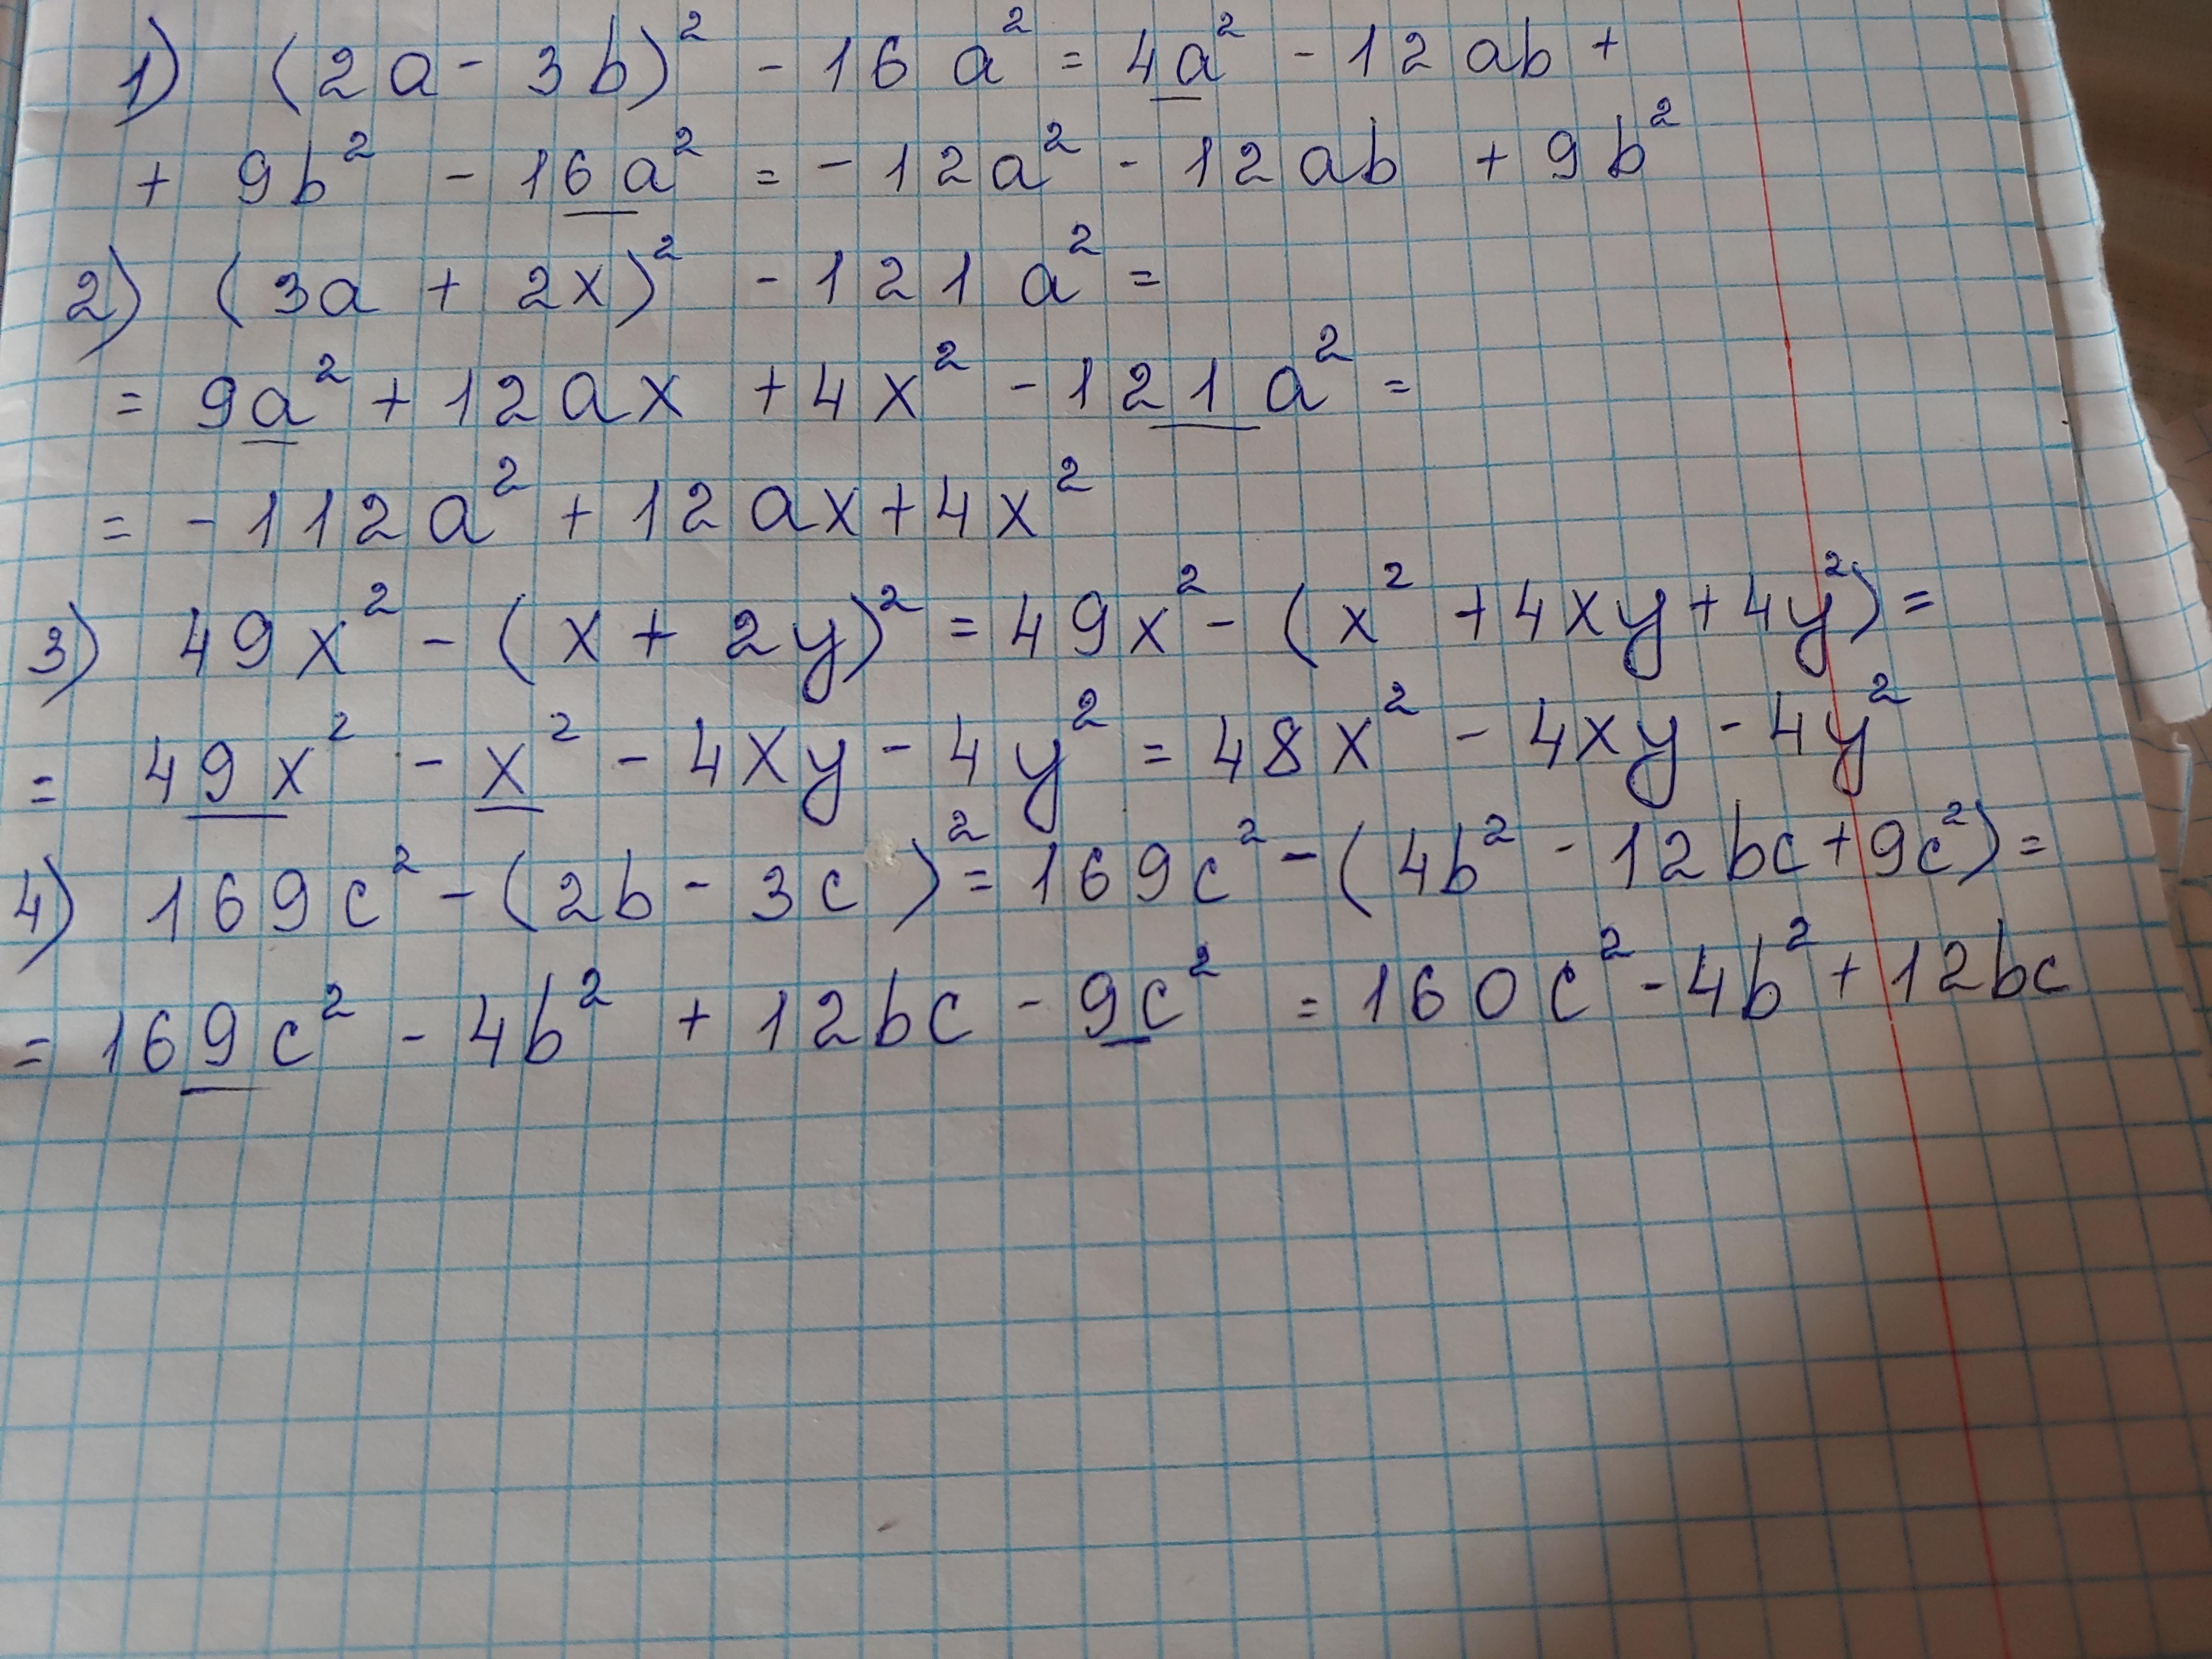 1) (2a - 3b)² - 16a² = 4a² - 12ab +
+ 9b² - 16a² = - 12a² - 12ab + 9b²
2) (3a + 2x)² - 121a² =
= 9a² + 12ax + 4x² - 121a² =
= - 112a² + 12ax + 4x²
3) 49x² - (x + 2y)² = 49x² - (x² + 4xy + 4y²) =
= 49x² - x² - 4xy - 4y² = 48x² - 4xy - 4y²
4) 169c² - (2b - 3c)² = 169c² - (4b² - 12bc + 9c²) =
= 169c² - 4b² + 12bc - 9c² = 160c² - 4b² + 12bc